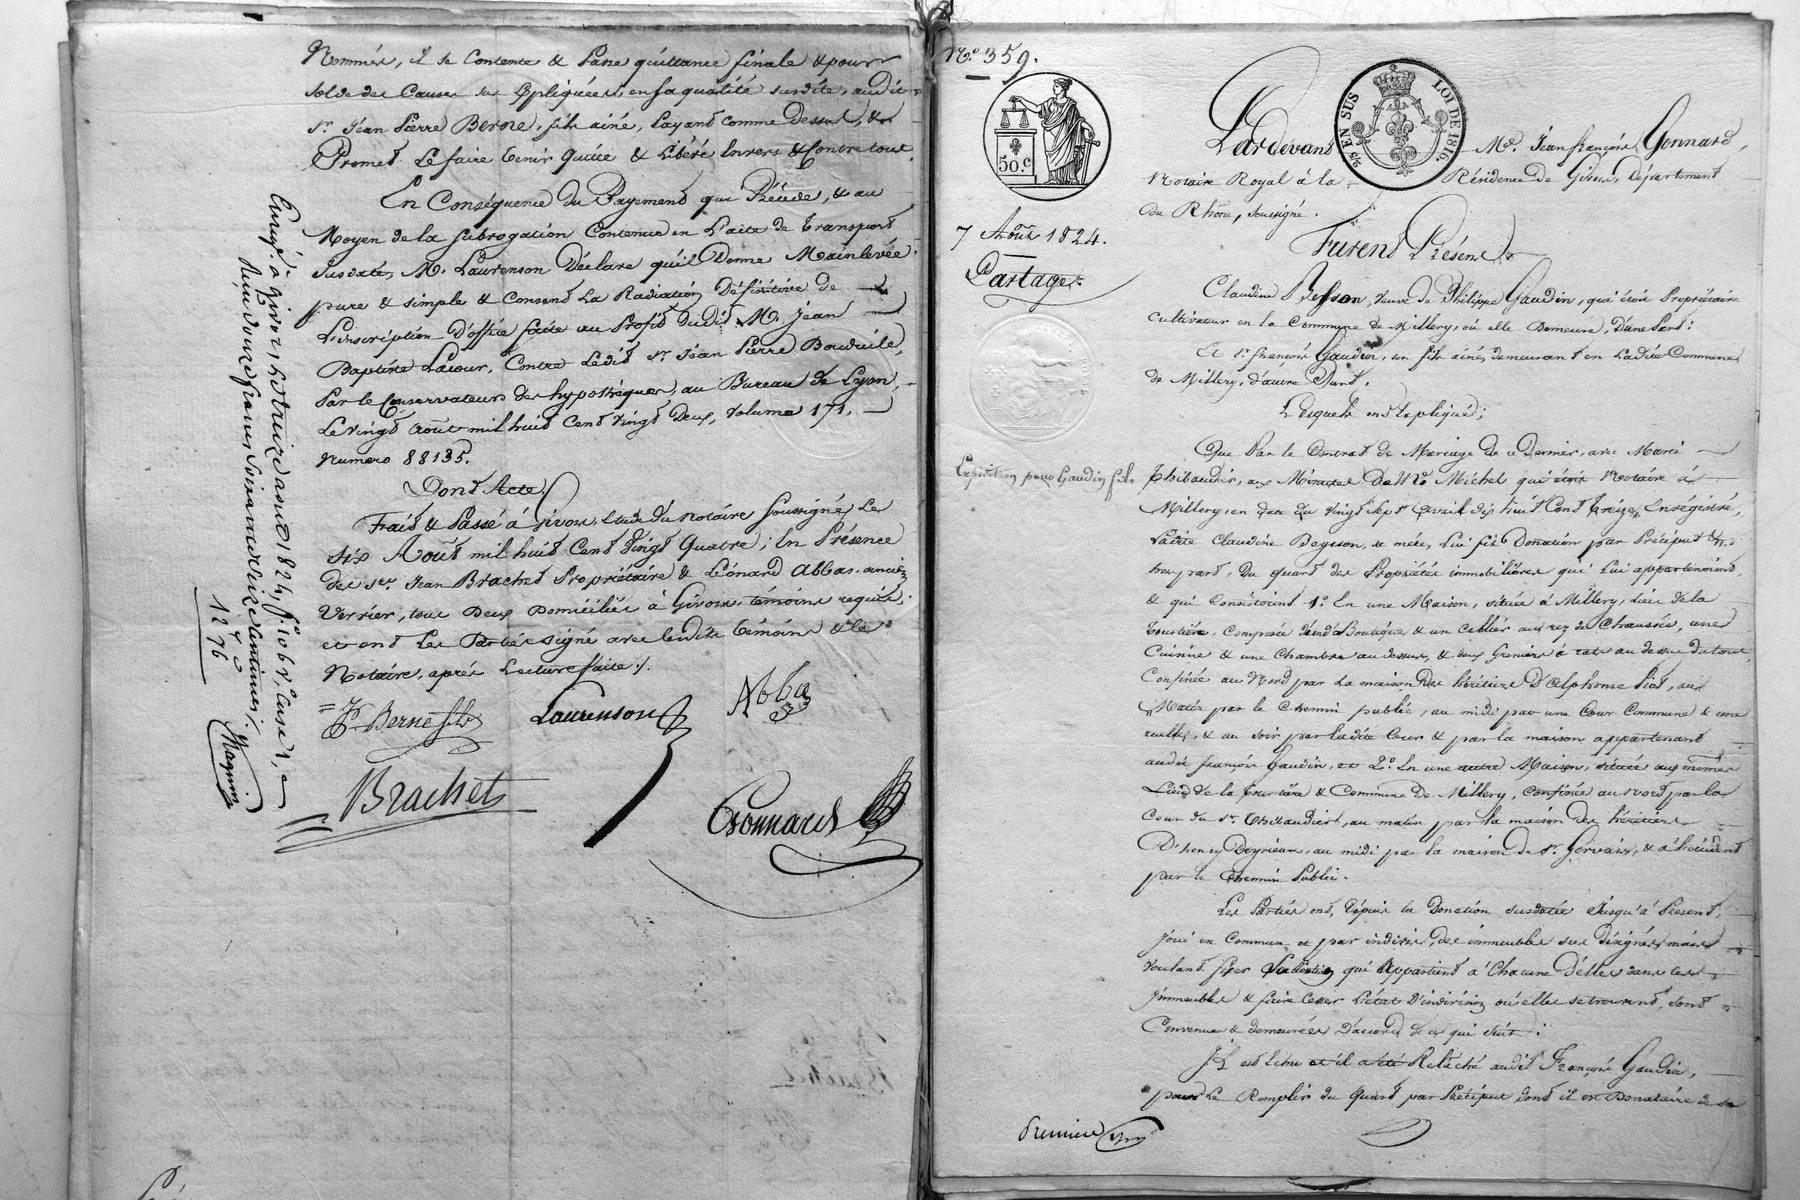 Nommés, il se Contente & Passe quittance finale & pour
solde des Causes sus Expliquées, en sa qualité susdite, audit
Sr. Jean Pierre Berne, fils ainé, Payant comme dessus, &
Promet Le faire tenir Quitte & Libéré Envers & Contre tous.
En Conséquence du Payement qui Précède, & au
Moyen de la subrogation Contenue en L'acte de transport
susdaté, M. Laurenson Déclare qu'il Donne Mainlevée
pure & simple & Consent La Radiation Définitive de
L'inscription D'office faite au Profit dudit Me. Jean
Baptiste Lacour, Contre Ledit Sr. Jean Pierre
Par le Conservateur des hypothèques, au Bureau de Lyon,
Le Vingt Août mil huit Cent Vingt Deux, Volume 171,
Numero 88135.
Dont Acte,
Fait & Passé à Givors, Etude du Notaire Soussigné Le
Six Août mil huit Cent Vingt Quatre; En Présence
des Srs. Jean Brachet Propriétaire & Léonard Abbas, ancien
Verrier, tous Deux Domiciliés à Givors, témoins requis;
et ont Les Parties signé avec lesdits témoins & le
Notaire, après Lecture faite.
Berne fils Laurenson Abbas
Brachet Gonnard
Enregé. à Givors, Le treize août 1824, fo. 106 Vo. Case 1,
Reçu douze francs
1276
No. 359.
50.c
25 EN SUS LOI DE 1816.
7 Août 1824.
Partage
Expédition pour Gaudin fils
Pardevant Me. Jean françois Gonnard,
Notaire Royal à la Résidence de Givors, Département
du Rhône, soussigné.
Furent Présens
Claudine Besson, Veuve de Philippe Gaudin, qui étoit Propriétaire
Cultivateur en la Commune de Millery, où elle Demeure, D'une Part:
Et Sr. françois Gaudin, son fils ainé, demeurant en Ladite Commune
de Millery, d'autre Part.
Lesquels ont Expliqué;
Que Par le Contrat de Mariage de ce Dernier, avec Marie
Thibaudier, aux Minutes De Me. Michel qui étoit Notaire à
Millery, en date du Vingt Sept Avril dix huit Cent treize, Enrégistré,
Ladite Claudine Beysson, sa mère, Lui fit Donation par Préciput &
hors part, Du quart des Propriétés immobilières qui Lui appartenoient,
& qui Consistoient 1o. En une Maison, située à Millery, Lieu de la
Tourtière, Composée Boutique & un Cellier au rez de Chaussée, une
Cuisine & une Chambre au dessus, & deux Greniers au dessus du tout,
Confinée au Nord par La maison Des héritiers D'Alphonse, au
Matin par le Chemin public, au midi par une Cour Commune & une
ruelle, & au Soir par ladite Cour & par la maison appartenant
audit françois Gaudin, et 2o. En une autre Maison, située aux mêmes
Lieu de la Tourtière & Commune de Millery, Confinée au Nord par la
Cour du Sr. Thibaudier, au matin par la maison des héritiers
D'henry Deyrieux, au midi par la maison de Sr. Gervais, & à l'occident
par le Chemin Public.
Les Parties ont, Depuis la Donation susdatée Jusqu'à Présent,
Joui en Commun et par indivis, des immeubles sus désignés, mais
Voulant fixer qui Appartient à Chacune d'elles dans ces
Immeubles & faire Cesser L'état D'indivision où elles se trouvent, sont
Convenues & demeurées D'accord de ce qui suit:
Il est Echu et il a été Relâché audit François Gaudin,
pour Le Remplir du Quart par Préciput dont il est Donataire de sa
Première